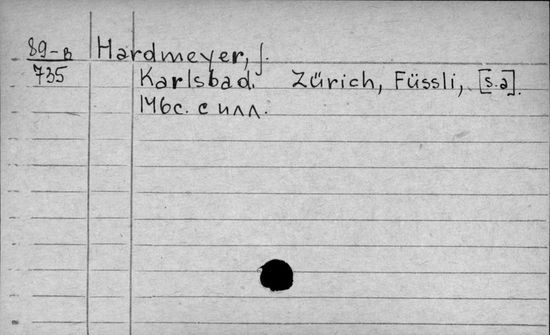 89-в Hardmeyer, J.
735 Karlsbad. Zürich, Füssli, [s.a].
146с. с илл.